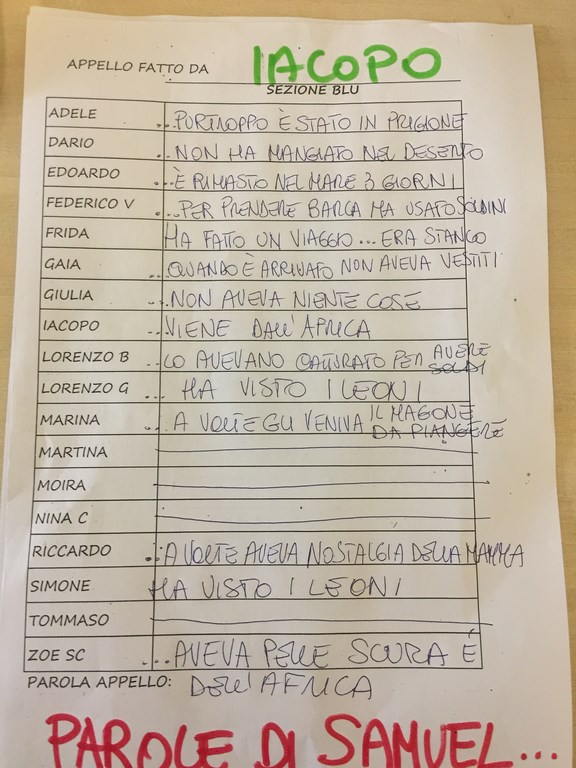 APPELLO FATTO DA IACOPO
SEZIONE BLU
ADELE ...PURTROPPO È STATO IN PRIGIONE
DARIO ...NON HA MANGIATO NEL DESERTO
EDOARDO ...È RIMASTO NEL MARE 3 GIORNI
FEDERICO V ...PER PRENDERE BARCA HA USATO SOLDINI
FRIDA HA FATTO UN VIAGGIO... ERA STANCO
GAIA ...QUANDO È ARRIVATO NON AVEVA VESTITI
GIULIA ...NON AVEVA NIENTE COSE
IACOPO ...VIENE DALL'AFRICA
LORENZO B ...LO AVEVANO CATTURATO PER AVERE SOLDI
LORENZO G ... HA VISTO I LEONI
MARINA ...A VOLTE GLI VENIVA IL MAGONE DA PIANGERE
MARTINA
MOIRA
NINA C
RICCARDO ...A VOLTE AVEVA NOSTALGIA DELLA MAMMA
SIMONE HA VISTO I LEONI
TOMMASO
ZOE SC ...AVEVA PELLE SCURA È
PAROLA APPELLO: DELL'AFRICA
PAROLE DI SAMUEL...